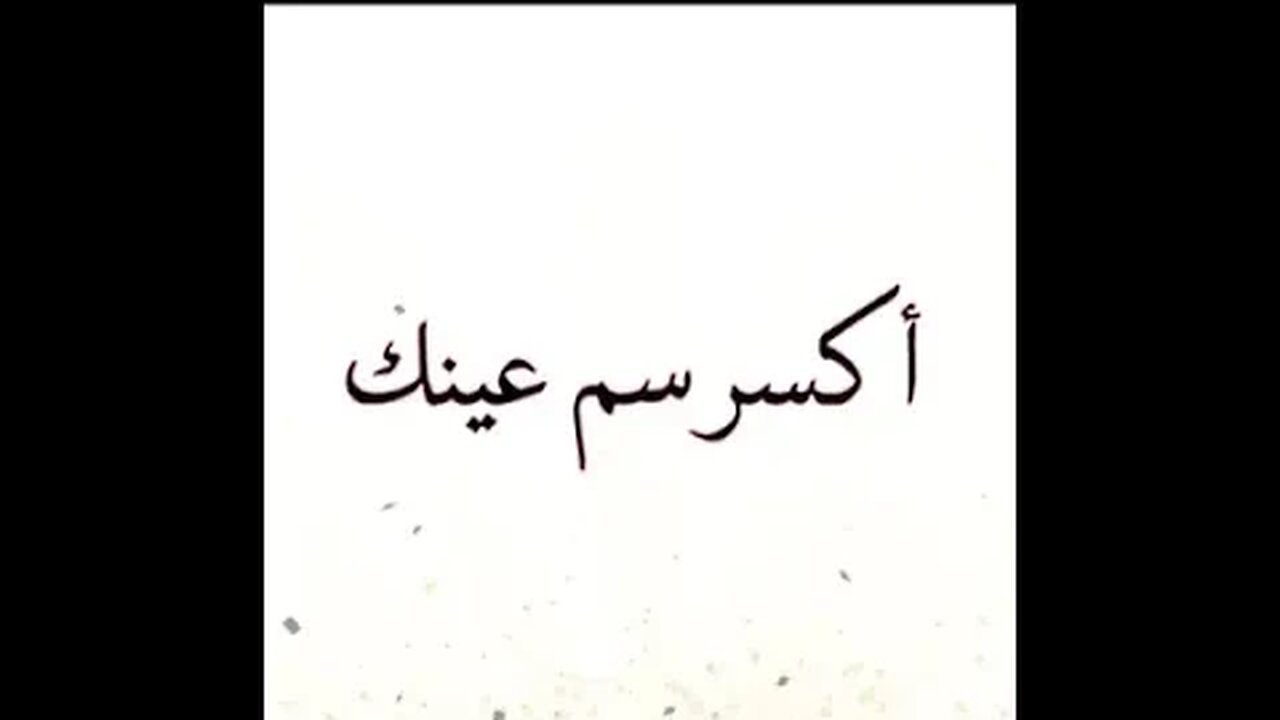 أكسر سم عينك